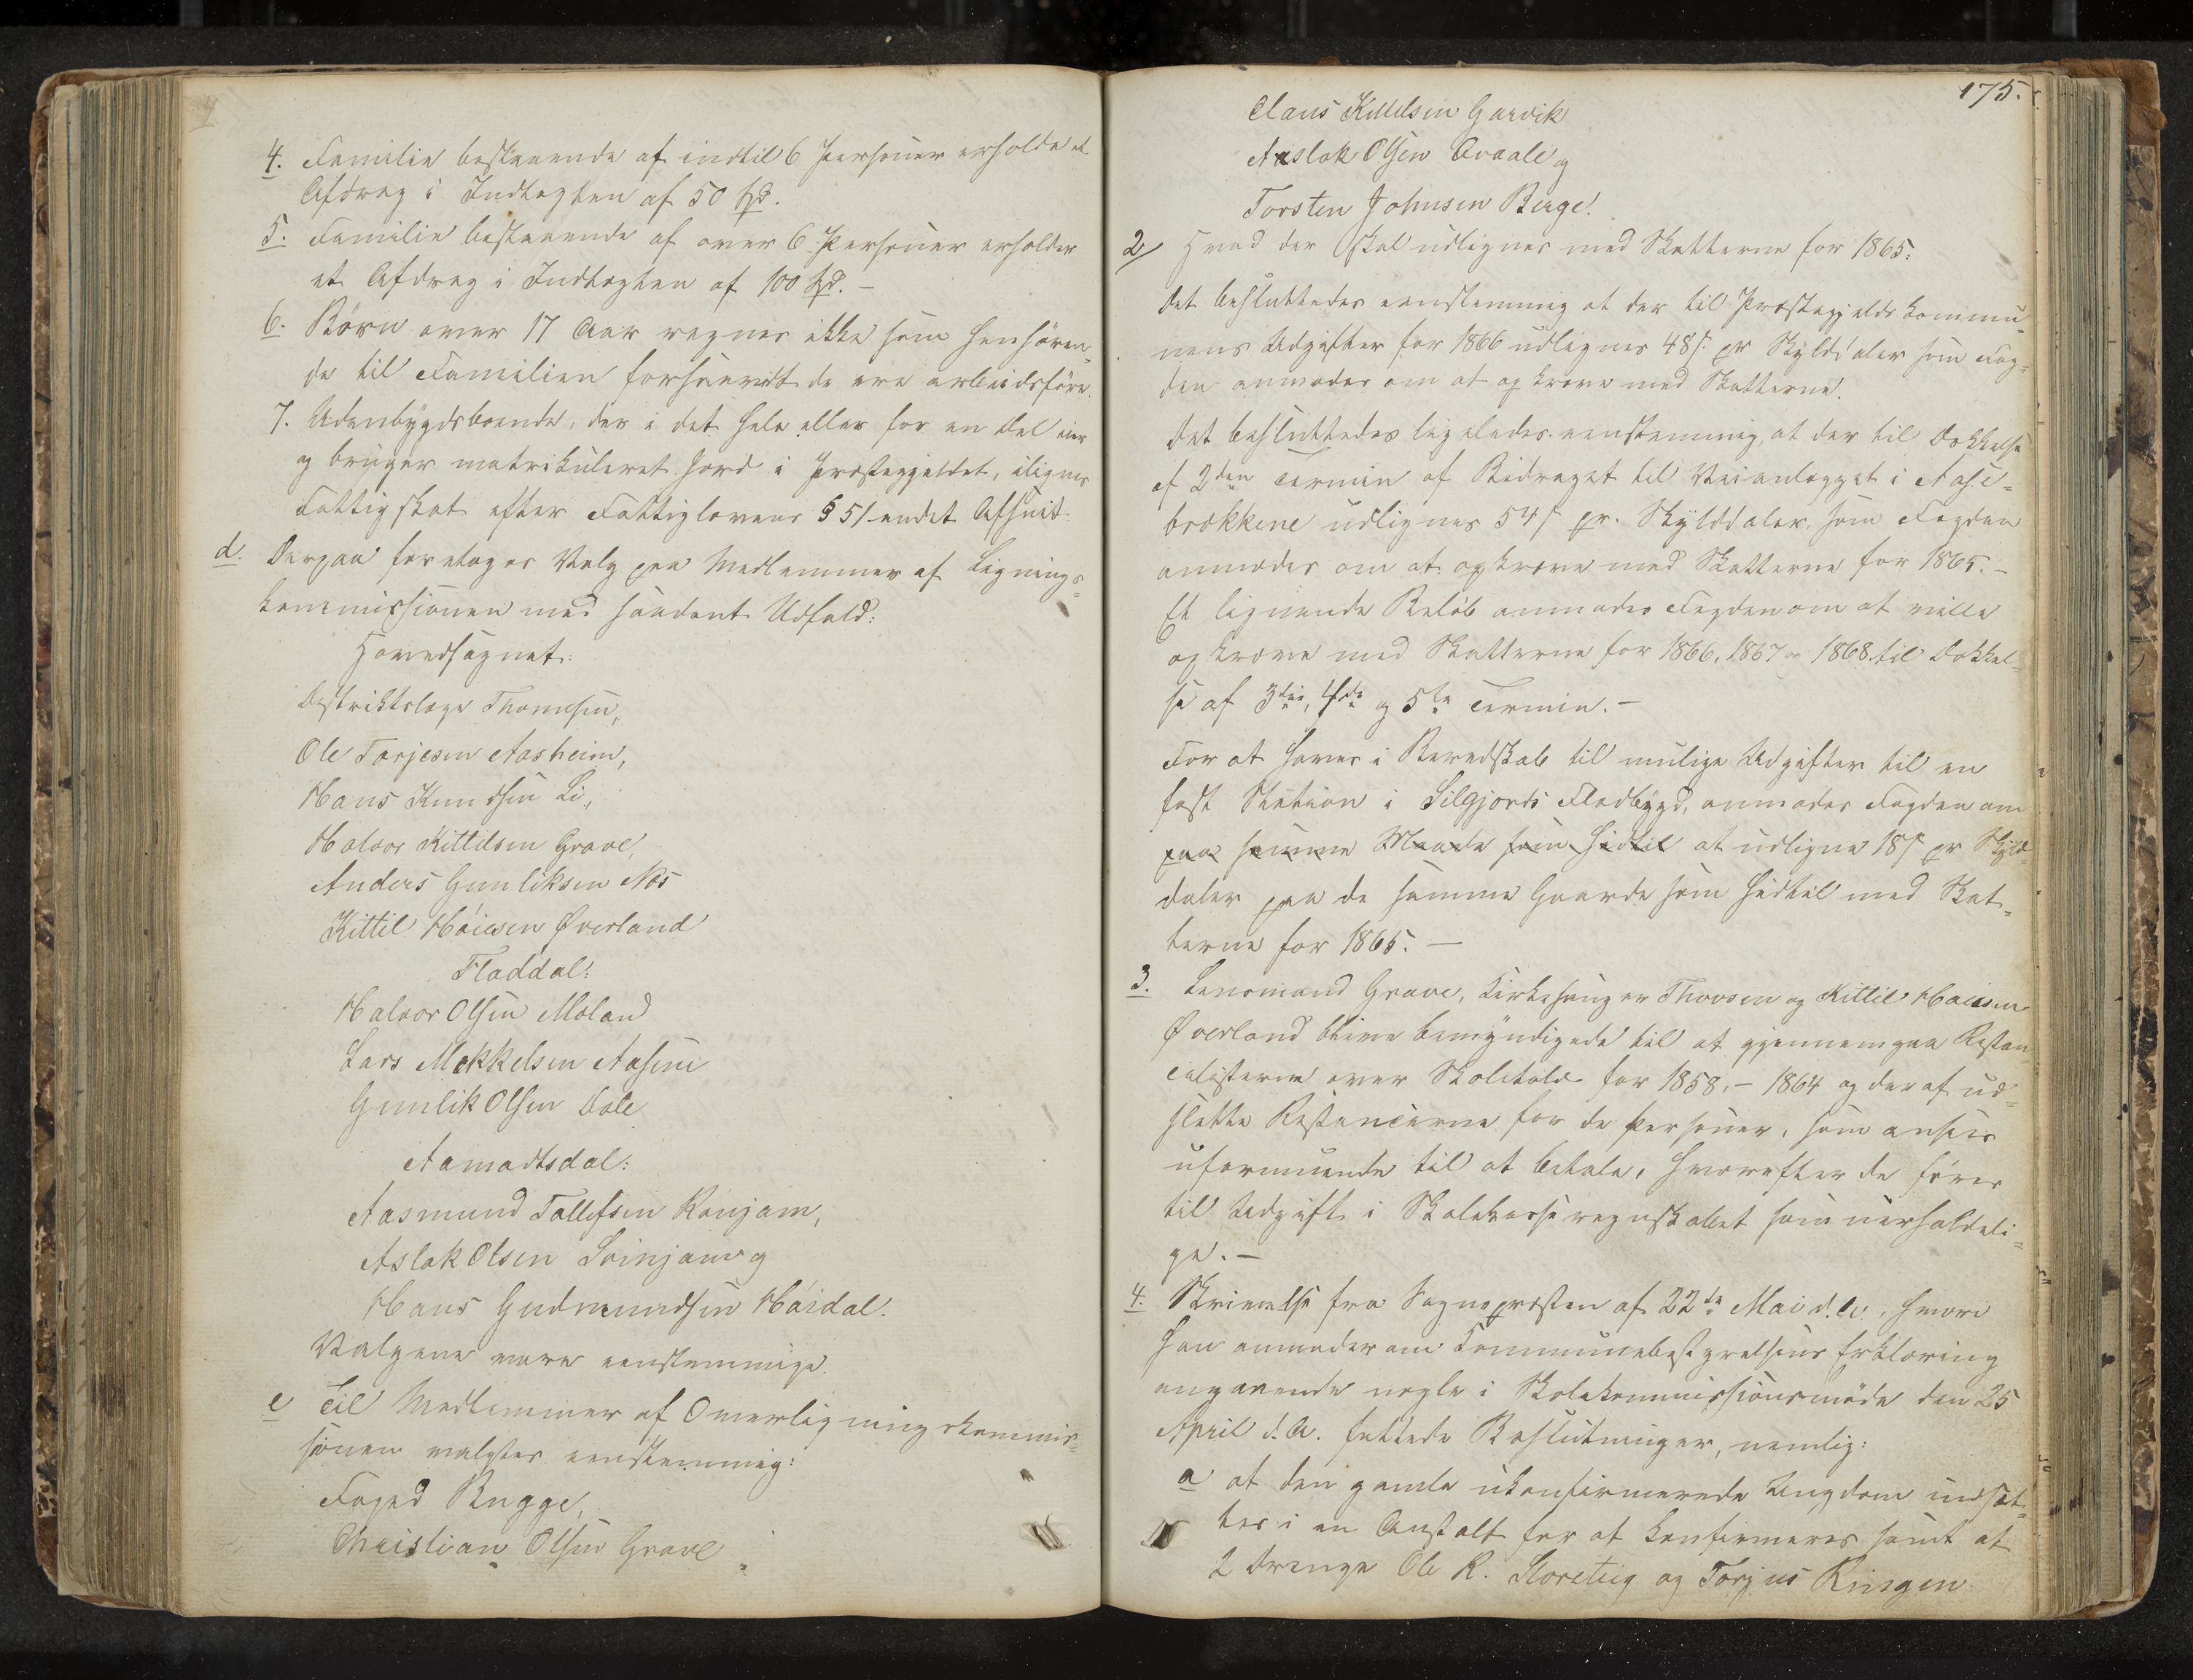 4. Familie bestaaende af indtil 6 Personer erholde et
Afdrag i Indtægten af 50 Spd.
5. Familie bestaaende af over 6 Personer erholder
et Afdrag i Indtægten af 100 Spd. –
6. Børn over 17 Aar regnes ikke som henhören-
de til Familien forsaavidt de ere arbeidsföre.
7. Udenbygdsboende, der i det hele eller for en Del eier
og bruger matrikuleret Jord i Præstegjeldet, ilignes
Fattigskat efter Fattiglovens § 51 andet Afsnit.
d. Derpaa foretoges Valg paa Medlemmer af Lignings-
kommissionen med saadant Udfald:
Hovedsognet:
Distriktslæge Thomesen,
Ole Tarjesen Aasheim,
Hans Knudsen Li,
Halvor Kittilsen Grave,
Anders Gunliksen Næs
Kittil Höiesen Øverland
Fladdal:
Halvor Olsen Moland
Lars Mekkelsen Aasene
Gunlik Olsen Dale
Aamadtsdal:
Aasmund Tallefsen Ronjam,
Aslak Olsen Svinjam og
Hans Gudmundsen Höidal.
Valgene vare eenstemmige.
e Til Medlemmer af Overligningskommis-
sionen valgtes eenstemmig:
Foged Bugge,
Christian Olsen Grave
175.
Claus Kittilsen Garvik
Aaslak Olsen Avaale og
Torsten Johnsen Berge.
2/ Hvad der skal udlignes med Skatterne for 1865:
Det besluttedes eenstemmig at der til Præstegjelds Kommu-
nens Udgifter for 1866 udlignes 48 s. pr Skylddaler som Fog-
den anmodes om at opkræve med Skatterne.
Det besluttedes ligeledes eenstemmig, at der til Dækkelse
af 2den Termin af Bidraget til Veianlægget i Aase-
brækkene udlignes 54 s pr. Skylddaler som Fogden
anmodes om at opkræve med Skatterne for 1865. –
Et lignende Beløb anmodes Fogden om at ville
opkræve med Skatterne for 1866, 1867 og 1868 til Dækkel-
se af 3die, 4de og 5te Termin. –
For at haves i Beredskab til mulige Udgifter til en
fast Station i Silgjords Fladbygd, anmodes Fogden om
paa samme Maade som hidtil at udligne 18 s pr Skyld-
daler paa de samme Gaarde som hidtil med Skat-
terne for 1865. –
3. Lensmand Grave, Kirkesanger Thorsen og Kittil Höiesen
Øverland blive bemyndigede til at gjennemgaa Restan-
celisterne over Skoletold for 1858, – 1864 og deraf ud-
slette Restancerne for de Personer, som ansees
uformuende til at betale, hvorefter de føres
til Udgift i Skolekasseregnskabet som uerholdeli-
ge. –
4. Skrivelse fra Sognepræsten af 22de Mai d. A., hvori
han anmoder om Kommunebestyrelsens Erklæring
angaaende nogle i Skolekommissionsmøde den 25
April d. A. fattede Beslutninger, nemlig:
a at den gamle ukonfirmerede Ungdom indsæt-
tes i en Anstalt for at konfirmeres samt at
2 Drenge Ole R. Storeteig og Torjus Ringen